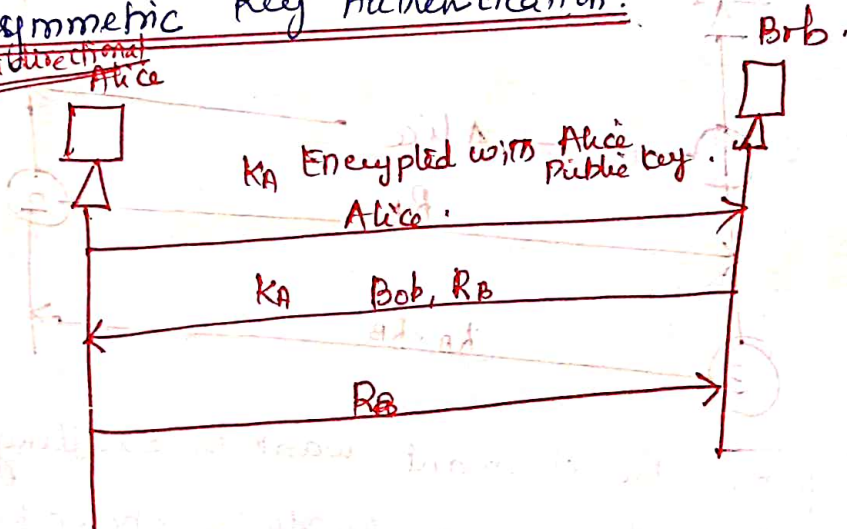 symmetric Key Authentication.
Alice
Bob.
KA Encrypted with Alice
Public key.
Alice.
KA Bob, RB
RB